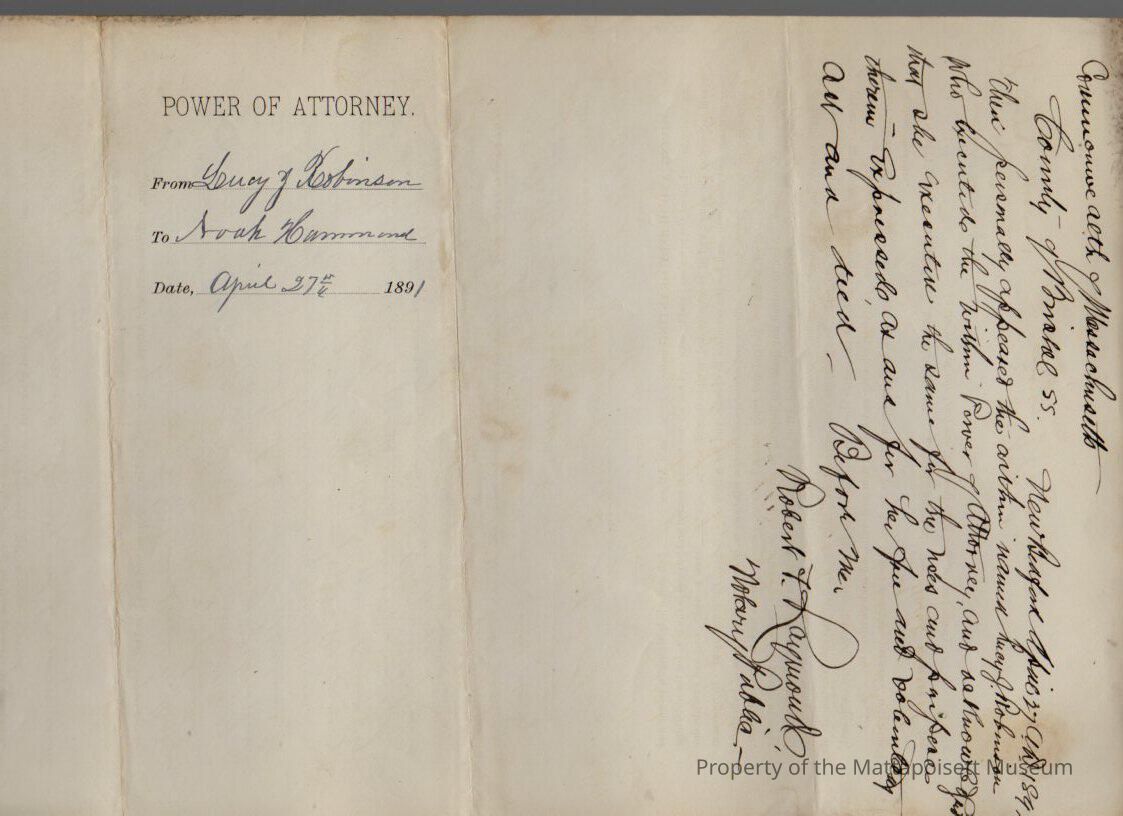 POWER OF ATTORNEY.
From Lucy J Robinson
To Noah Hammond
Date, April 27th 1891
Commonwealth of Massachusetts
County of Bristol ss. New Bedford April 27 1891
Then personally appeared the within named Lucy J. Robinson
who executed the within Power of Attorney, and acknowledged
that she executed the same for the uses and purposes
therein expressed, as and for her free and voluntary
act and deed — Before me,
Robert F. Raymond
Notary Public —
Property of the Mattapoisett Museum